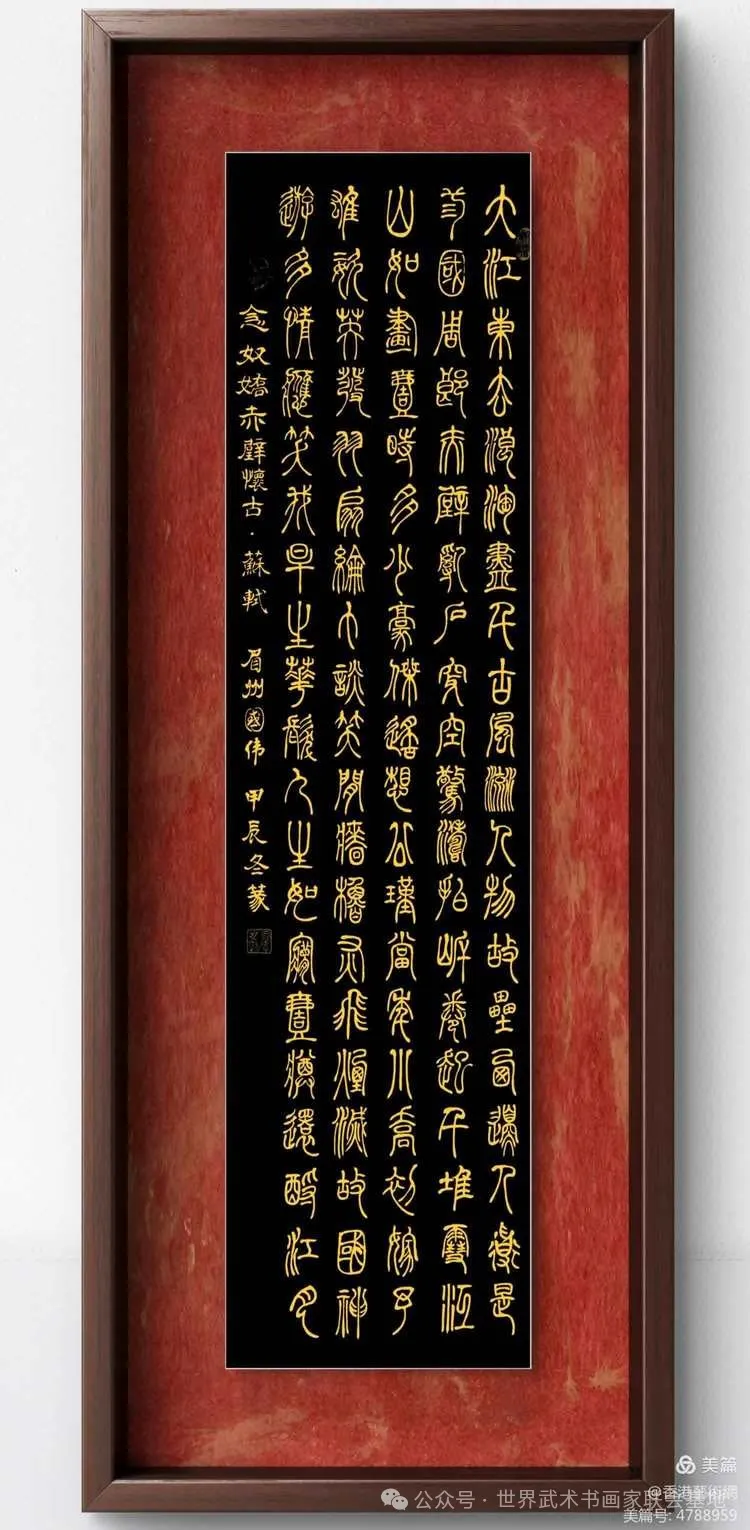 大江東去浪淘盡千古風流人物故壘西邊人道是
三國周郎赤壁亂石穿空驚濤拍岸卷起千堆雪江
山如畫壹時多少豪傑遙想公瑾當年小喬初嫁了
雄姿英發羽扇綸巾談笑間檣櫓灰飛煙滅故國神
遊多情應笑我早生華髮人生如夢壹樽還酹江月
念奴嬌赤壁懷古·蘇軾 眉州國伟 甲辰冬篆
美篇
@香港藝術網
公众号·世界武术书画家联会基地
美篇号: 4788959